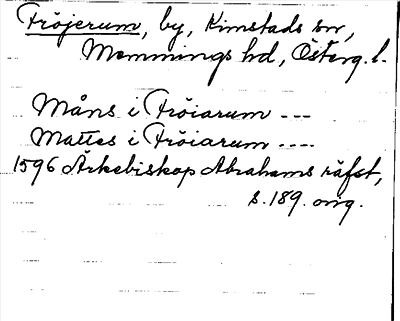 Fröjerum, by, Kimstads sn,
Memmings hd, Österg. l.
Måns i Fröiarum ---
Mattes i Fröiarum ----
1596 Ärkebiskop Abrahams räfst,
s. 189. orig.